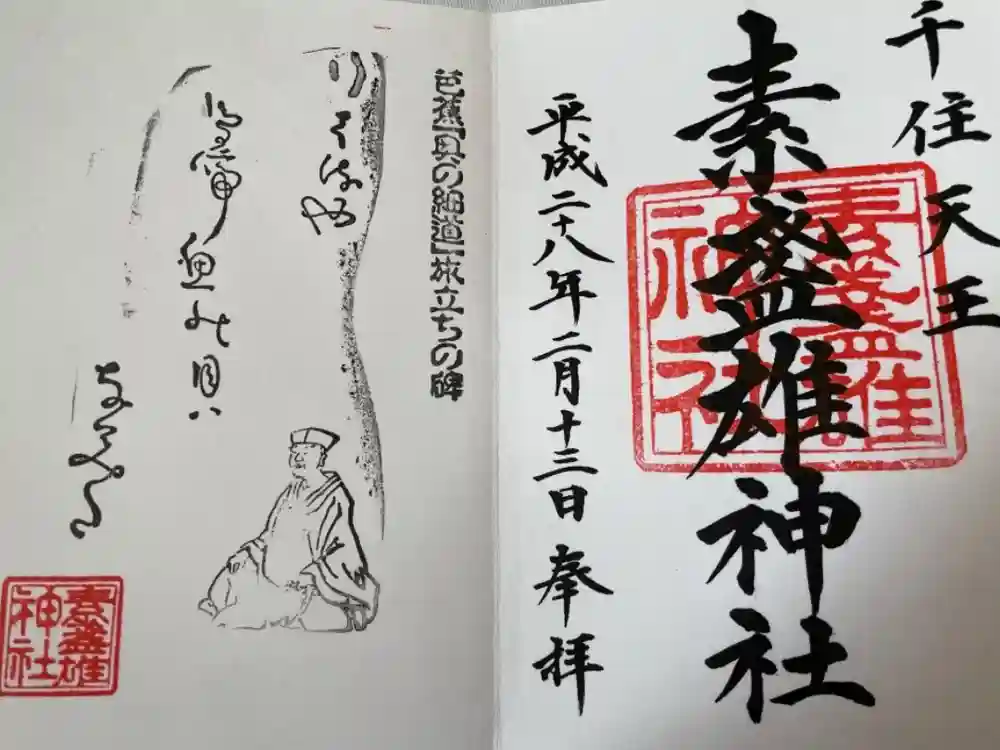 千住天王
素盞雄神社
素盞雄
神社
平成二十八年二月十三日 奉拝
芭蕉「奥の細道」旅立ちの碑
行くはるや
鳥啼魚の目ハ
なみだ
素盞雄
神社